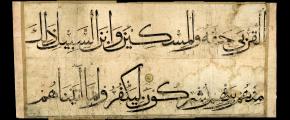 القربى حقه والمسكين وابن السبيل ذلك
منهم بربهم يشركون ليكفروا بما اتيناهم